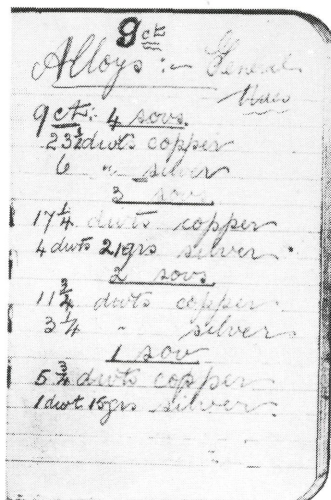 9ct
Alloys :- General
Uses
9ct:- 4 sovs.
23½dwts copper
6 " silver
3 sovs
17¼ dwts copper
4 dwts 21grs silver.
2 sovs
11¾ dwts copper
3¼ " silver
1 sov
5¾ dwts copper
1 dwt 15grs silver.